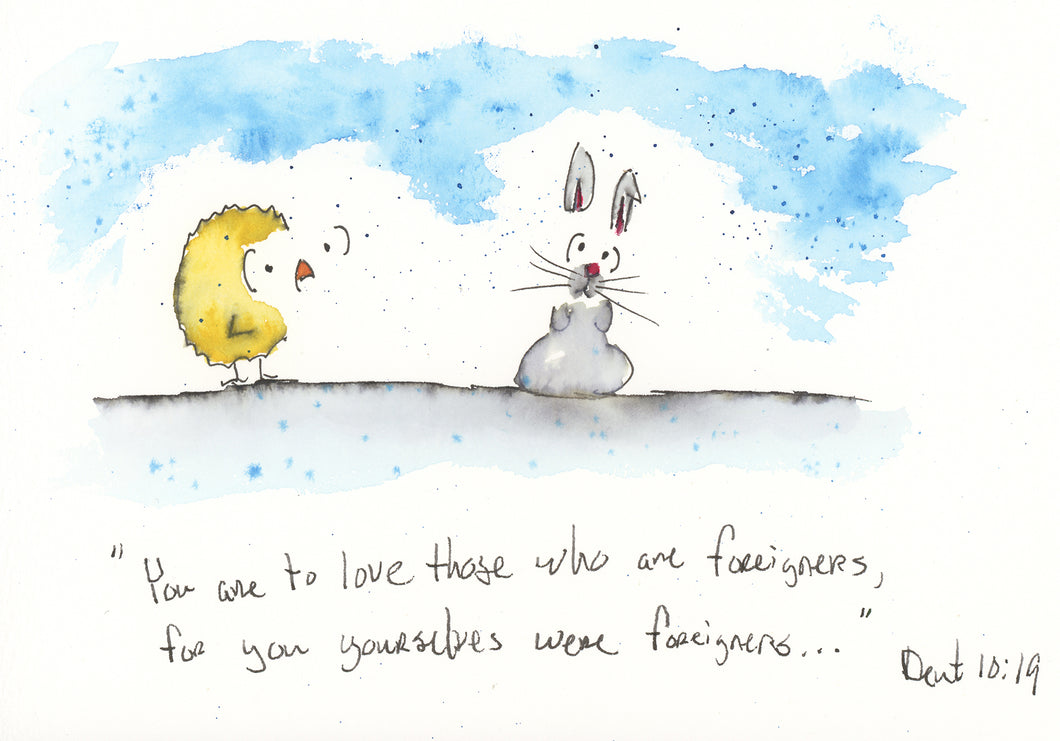 "You are to love those who are foreigners,
for you yourselves were foreigners..."
Deut 10:19